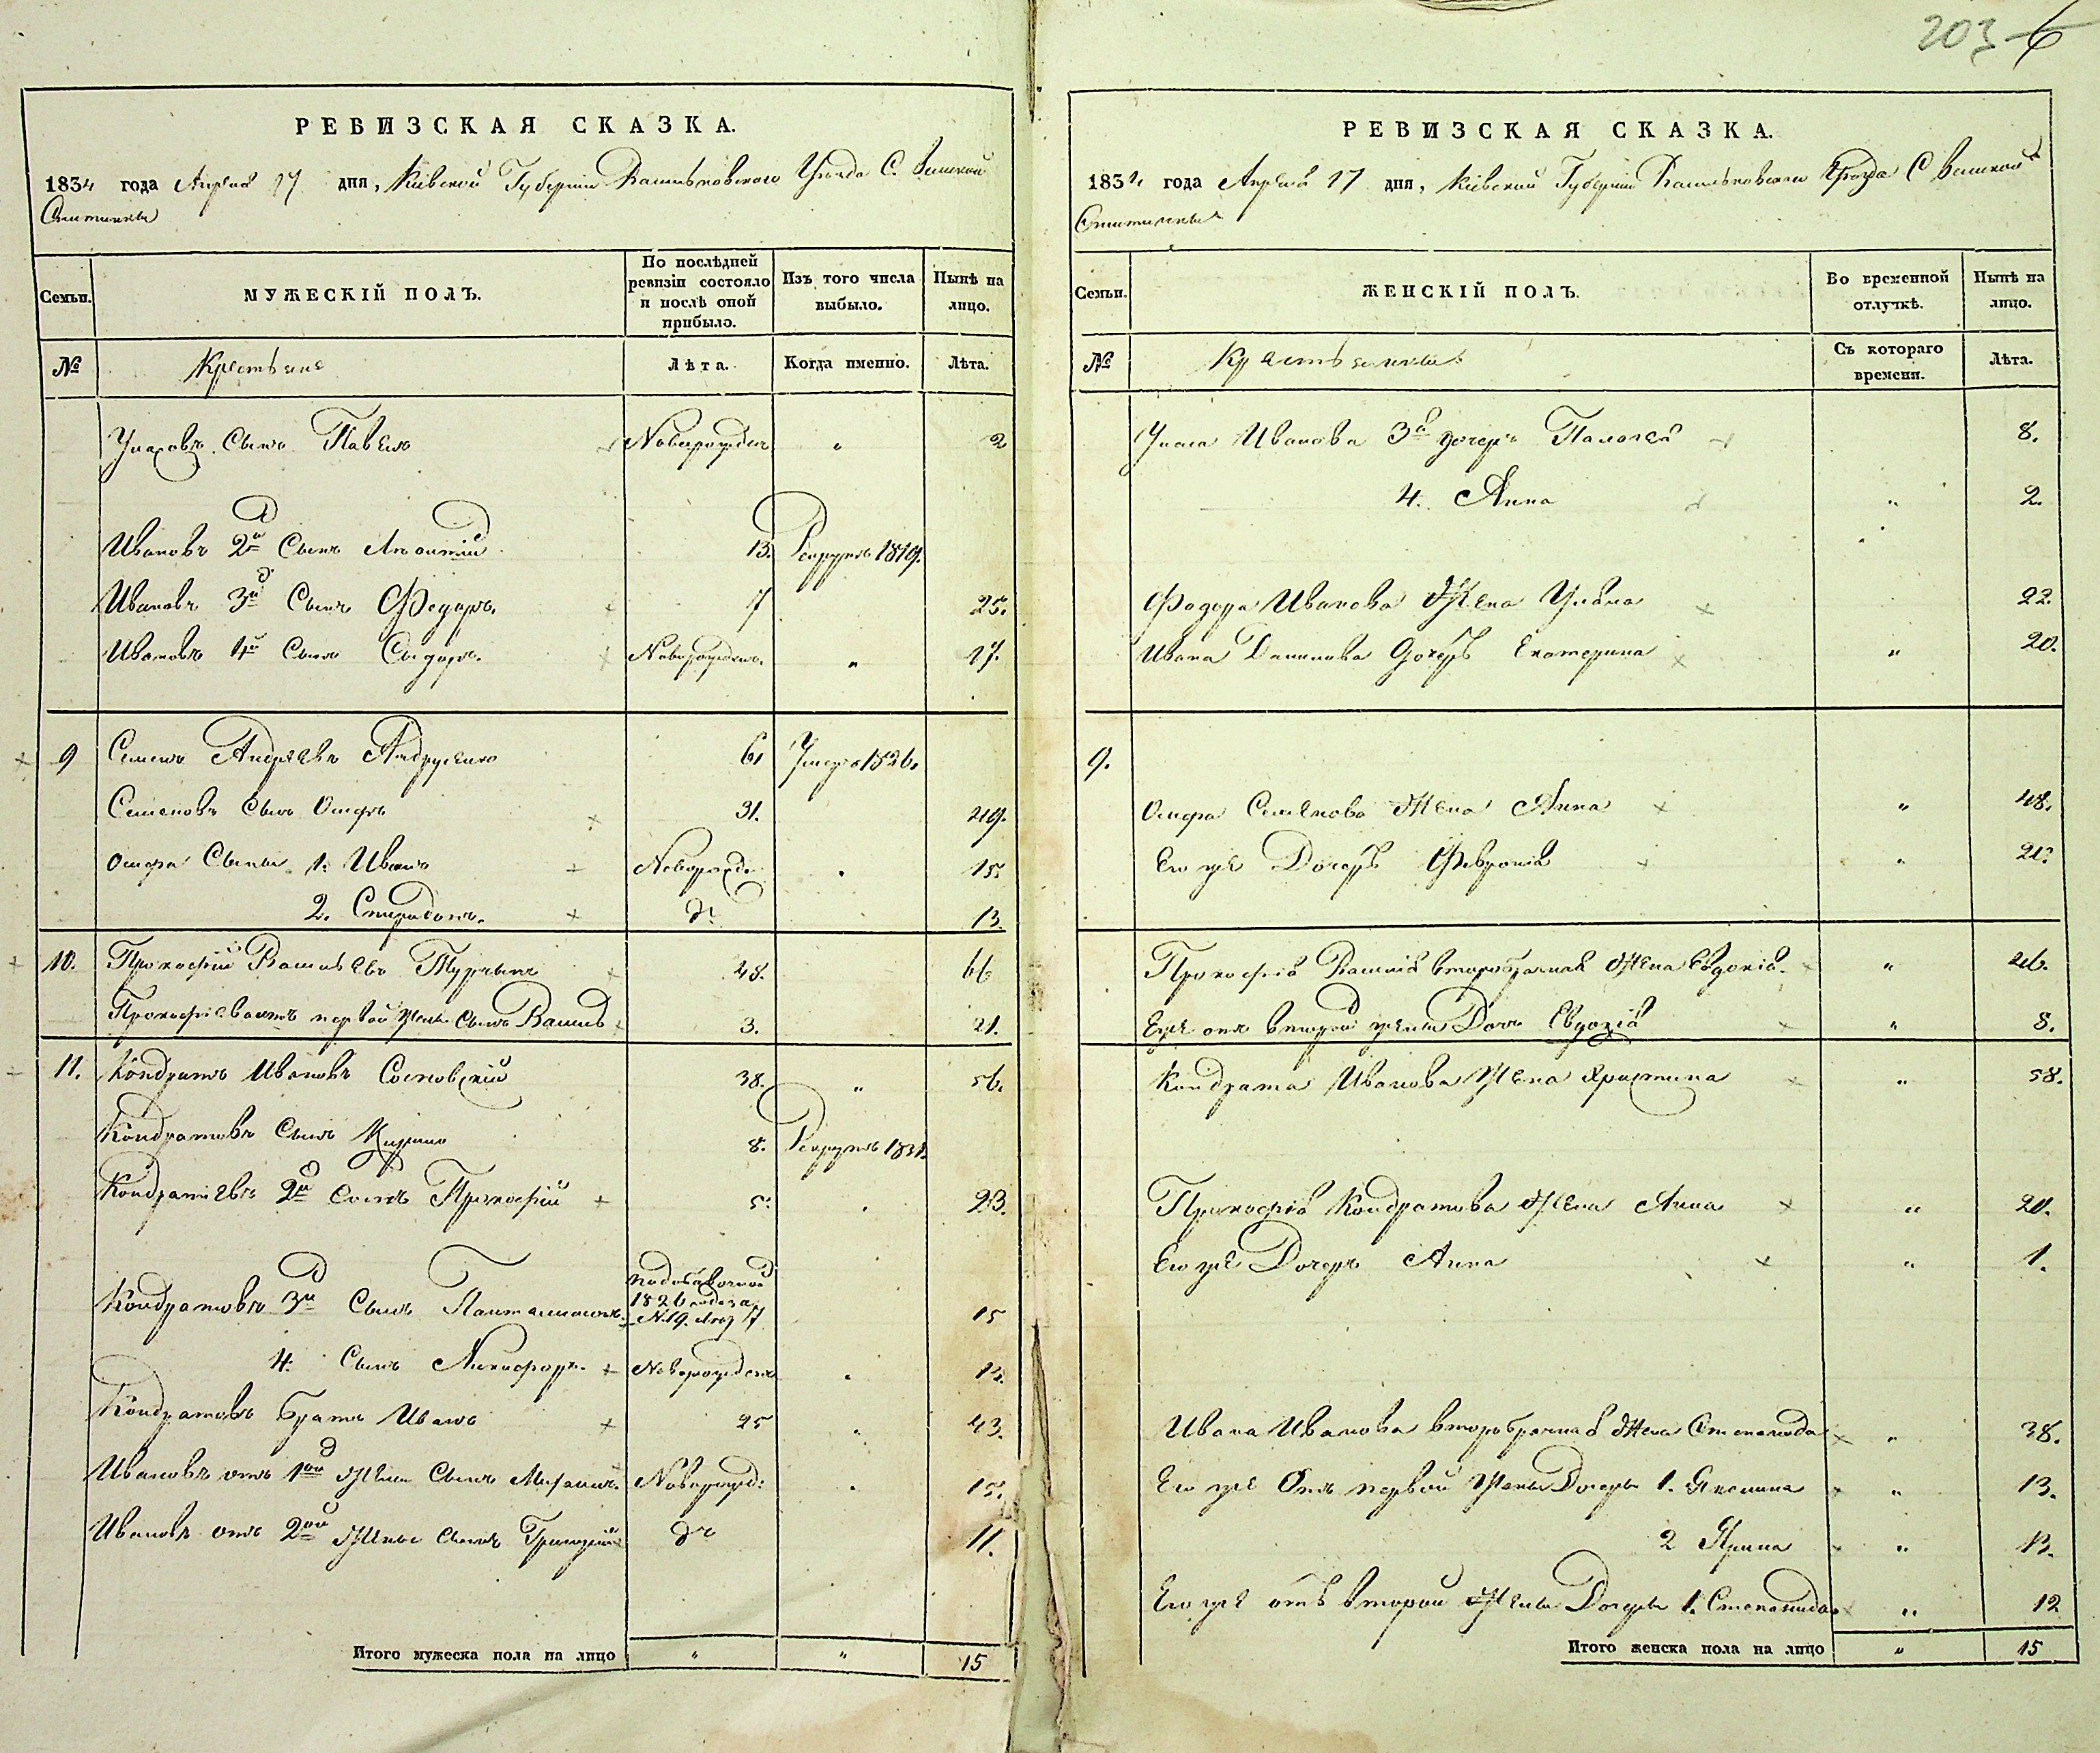 203 6
РЕВИЗСКАЯ СКАЗКА.
1834 года Апреля 17 дня, Кіевской Губерніи Васильковского Уезда С. Великой
РЕВИЗСКАЯ СКАЗКА.
1834 года Апреля 17 дня, Кіевской Губерніи Васильковского Уезда С Великой
Семьи.
МУЖЕСКІЙ ПОЛЪ.
По послѣдней ревизіи состояло и послѣ оной прибыло.
Изъ того числа выбыло.
Нынѣ на лицо.
№
Крестьяне
Лѣта.
Когда именно.
Лѣта.
Сыпъ Павелъ Новорожден " 2
Ивановъ 2й Сынъ Леонтій 13. Рекрутъ 1819.
Ивановъ 3й Сынъ Федоръ. 7 25.
Ивановъ 4й Сынъ Сидоръ. Новорожден. " 17.
9 Семенъ Андреевъ Андрусенко 61 Умеръ 1826.
Семеновъ Сынъ Осифъ 31. 49.
Осифа Сыны 1. Иванъ Новорожд. 15.
2. Спиридонъ. до 13.
10. Прокофій Васильевъ Турчынъ 48. 66
Прокофіева отъ первой жены Сынъ Василь 3. 21.
11. Кондратъ Ивановъ Сосновскій 38. " 56.
Кондратовъ Сынъ Кирило 8. Рекрутъ
Кондратіевъ 2й Сынъ Прокофій 5. 23.
Кондратовъ 3й Сынъ Панталимонъ. 15
4. Сынъ Никифоръ. Новорожденъ 12.
Кондратовъ братъ Иванъ 25 43.
Ивановъ отъ 1ой Жены Сынъ Михаилъ. Новорожд: 15.
Ивановъ отъ 2ой Жены Сынъ Григорій до 11.
Итого мужеска пола на лицо " " 15
Семьи.
ЖЕНСКІЙ ПОЛЪ.
Во временной отлучкѣ.
Нынѣ на лицо.
№
Крестьянки
Съ котораго времени.
Лѣта.
Ивановa 3я дочерь Палагея 8.
4. Анна " 2.
Федора Иванова Жена Уляна 22.
Ивана Данилова Дочерь Екатерина " 20.
9.
Осифа Семенова Жена Анна " 48.
Его же Дочерь Февронія " 21.
Прокофія Василія второбрачная Жена Евдокія. " 46.
Еще отъ второй жены Дочь Евдокія " 8.
Кондрата Иванова Жена Христина " 58.
Прокофія Кондратова Жена Анна " 20.
Его же Дочерь Анна " 1.
Ивана Иванова второбрачная Жена Степанида " 38.
Его же Отъ первой Жены Дочеры 1. Якилина " 13.
2 Ярина " 13.
Его же отъ второй Жены Дочеры 1. Степанида " 12
Итого женска пола на лицо " 15